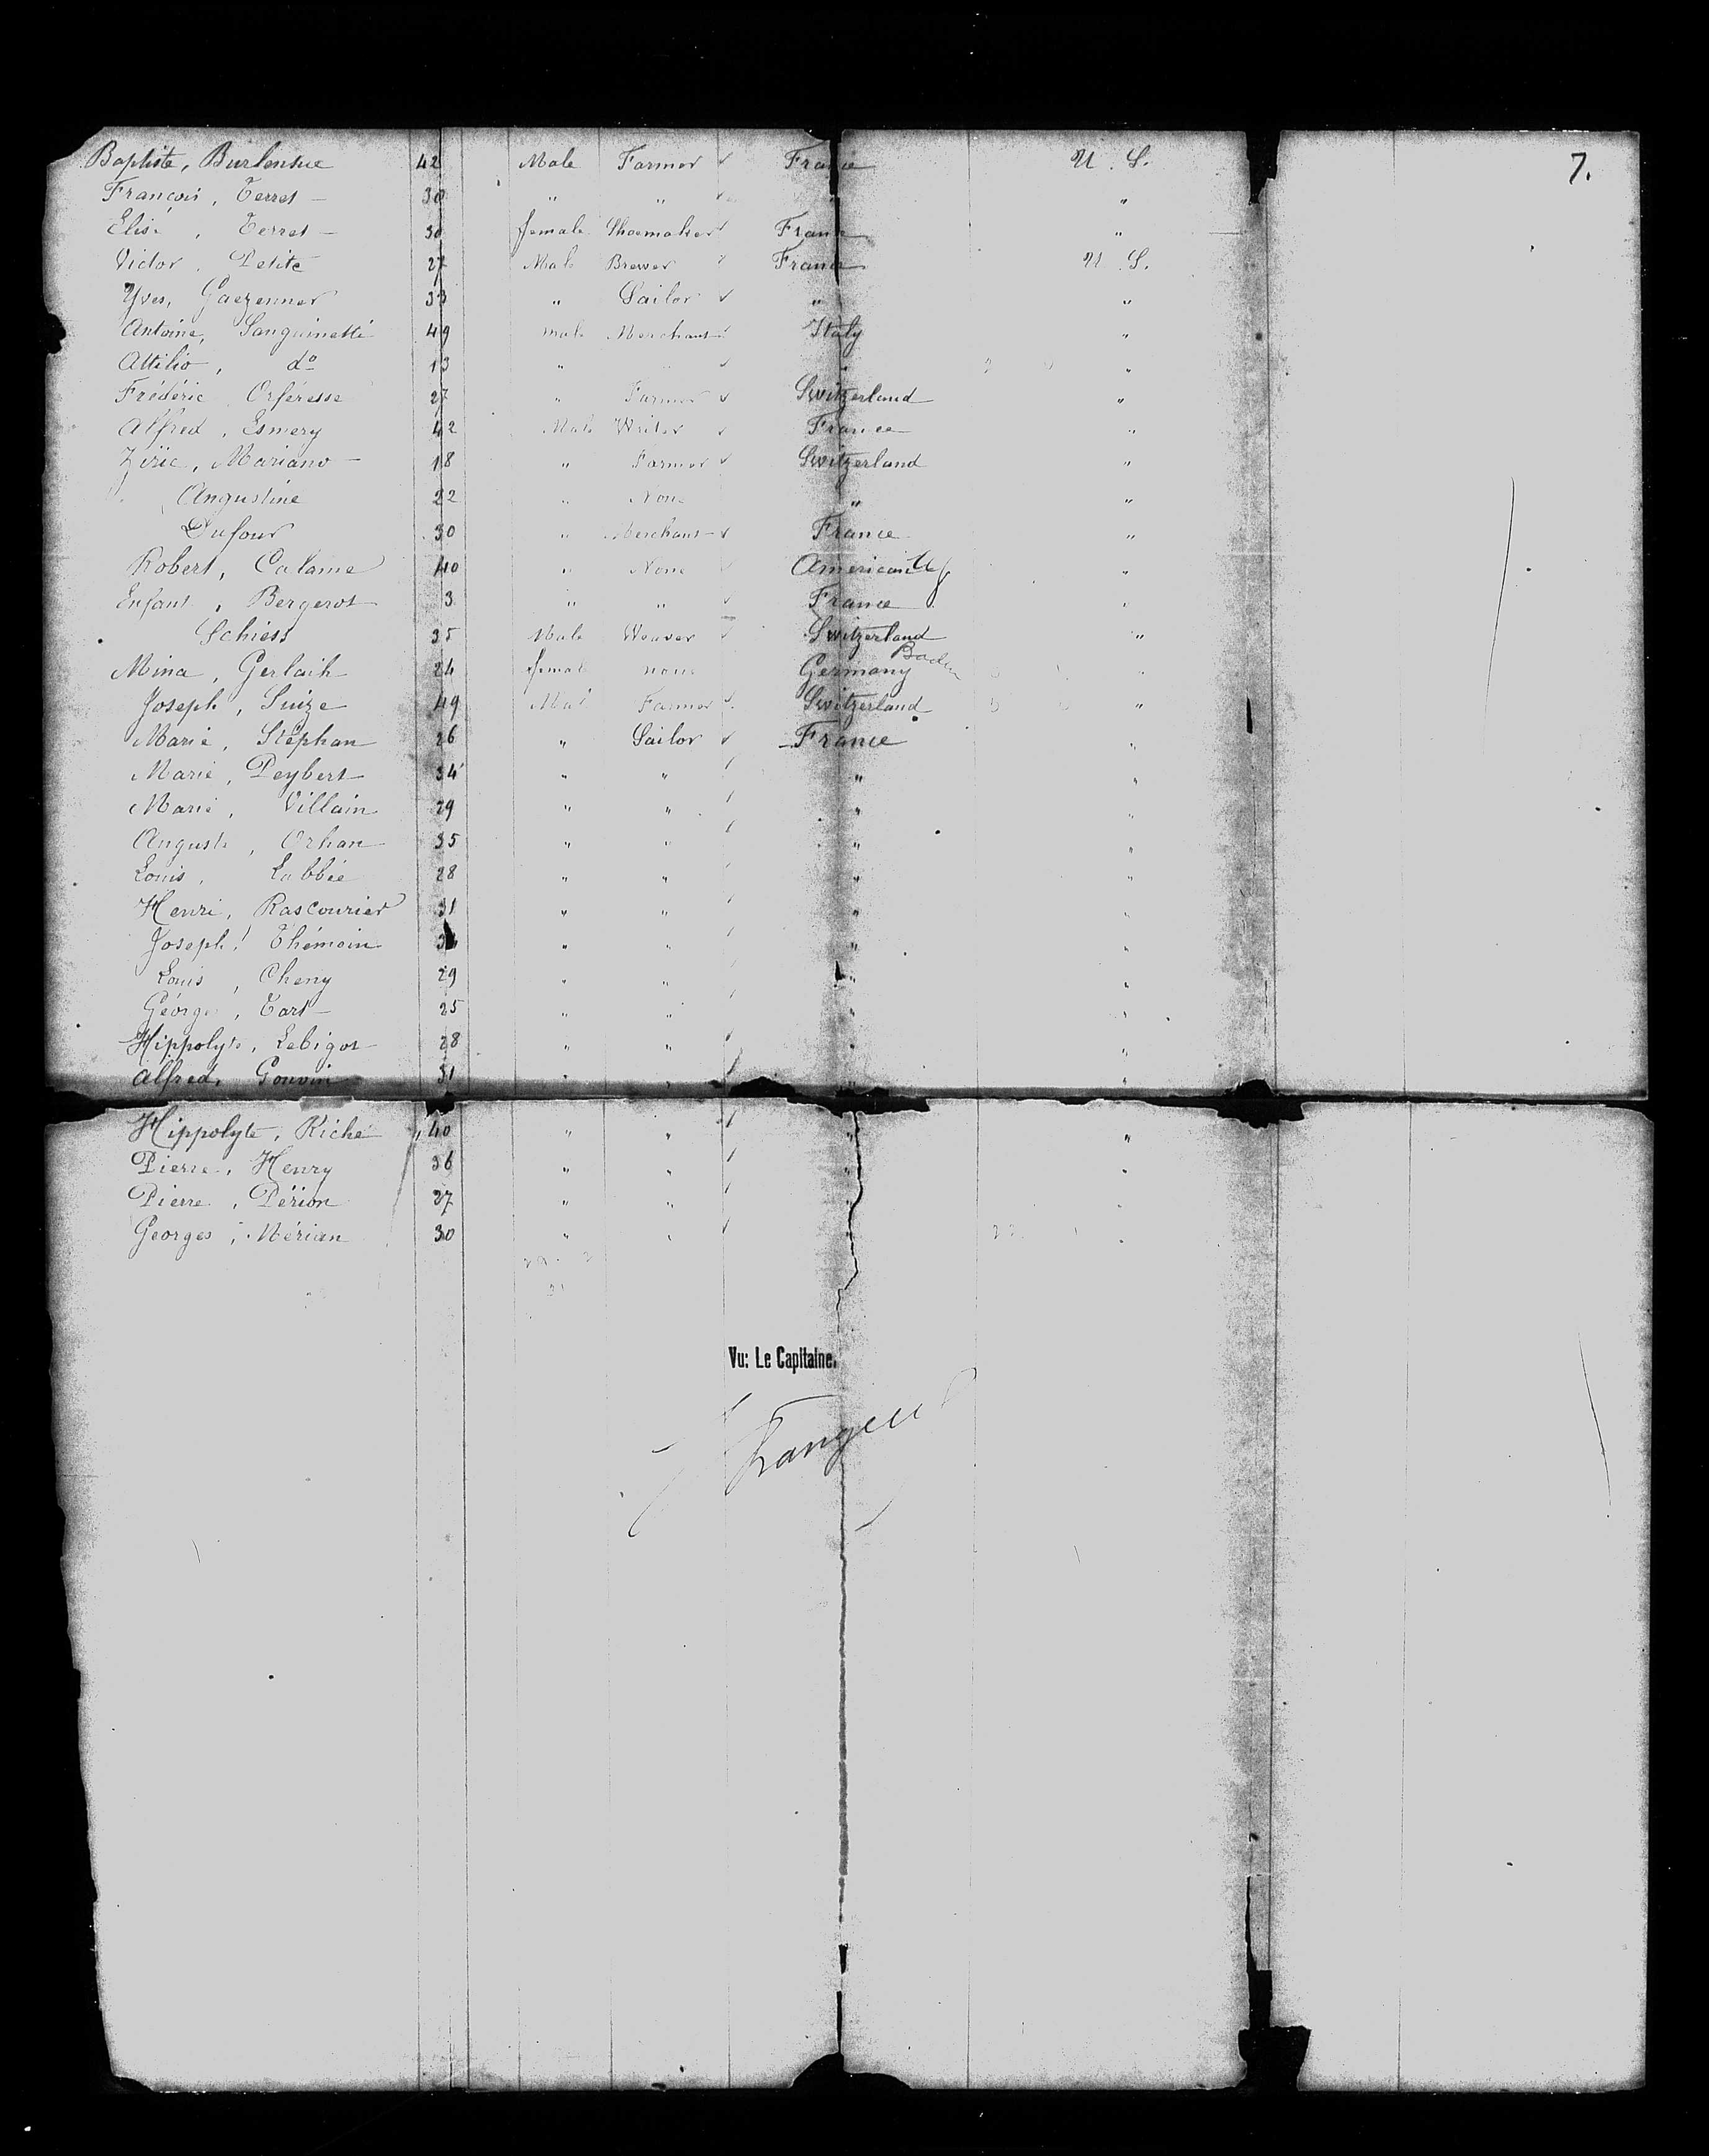 7.
Baptiste, Burlensue 42 Male Farmer ✓ France U. S.
François, Terret — 30 " " ✓ "
Elise, Terret — 30 female Shoemaker ✓ France "
Victor, Petite 27 Male Brewer France U. S.
Yves, Gaezenner 33 " Sailor ✓ " "
Antoine, Sanguinetti 49 male Merchant ✓ Italy "
Attilio, do 13 " " ✓ " "
Frédéric Orféresse 27 " Farmer ✓ Switzerland "
Alfred, Esmery 42 Male Writer ✓ France "
Ziric, Mariano — 18 " Farmer ✓ Switzerland "
Angustine 22 " None " "
Dufour 30 " Merchant ✓ France "
Robert, Calame 40 " None American "
Enfant, Bergerot 3 " " ✓ France "
Schiess 35 Male Weaver ✓ Switzerland "
Mina, Gerlach 24 female none Germany Baden "
Joseph, Suize 49 Male Farmer ✓ Switzerland "
Marie, Stéphan 26 " Sailor ✓ France "
Marie, Peybert 34 " " ✓ " "
Marie, Villain 29 " " ✓ " "
Auguste, Orhan 35 " " ✓ " "
Louis, Labbée 28 " " ✓ " "
Henri, Rascourier 31 " " ✓ " "
Joseph, Thémoin " " ✓ " "
Louis, Cheny 29 " " ✓ " "
George, Tart — 25 " " ✓ " "
Hippolyte, Lebigot 28 " " ✓ " "
Alfred, Gouvin 31 " " ✓ " "
Hippolyte, Riche 40 " " ✓ " "
Pierre, Henry 36 " " ✓ " "
Pierre, Périon 27 " " ✓ " "
Georges, Mérian 30 " " ✓ " "
Vu: Le Capitaine.